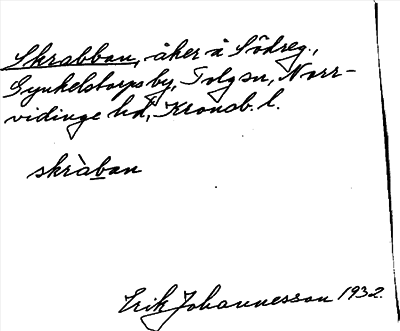 Skrabban, åker å Södreg.,
Gynkelstorps by, Tolg sn, Norr-
vidinge hd, Kronob. l.
skràban
Erik Johannesson 1932.